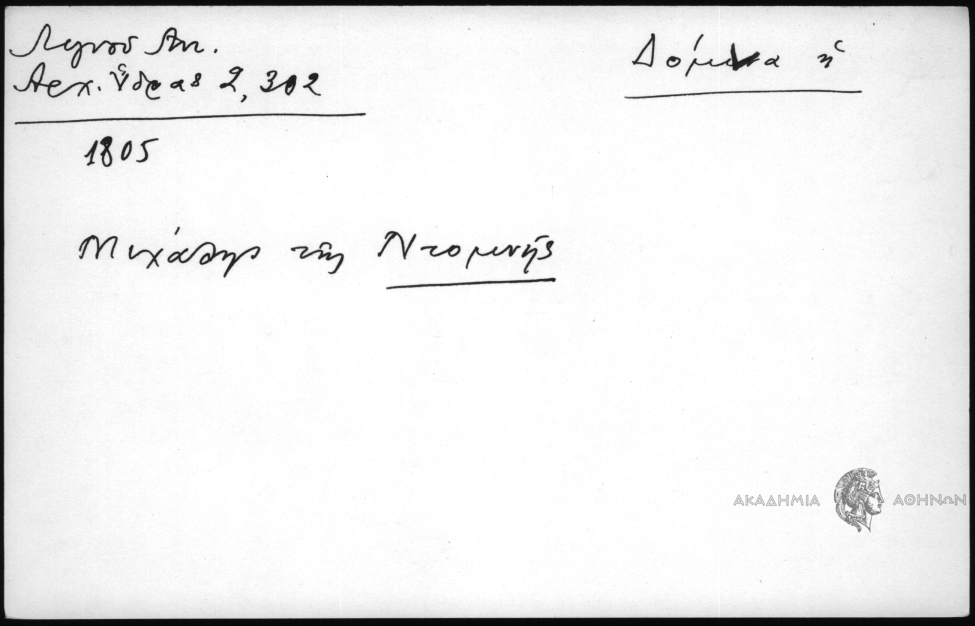 Λιγνοῦ Ἀντ.
Ἀρχ. Ὕδρας 2, 302
Δόμνα ἡ
1805
Μιχάλης τῆς Ντομνῆς
ΑΚΑΔΗΜΙΑ ΑΘΗΝΩΝ